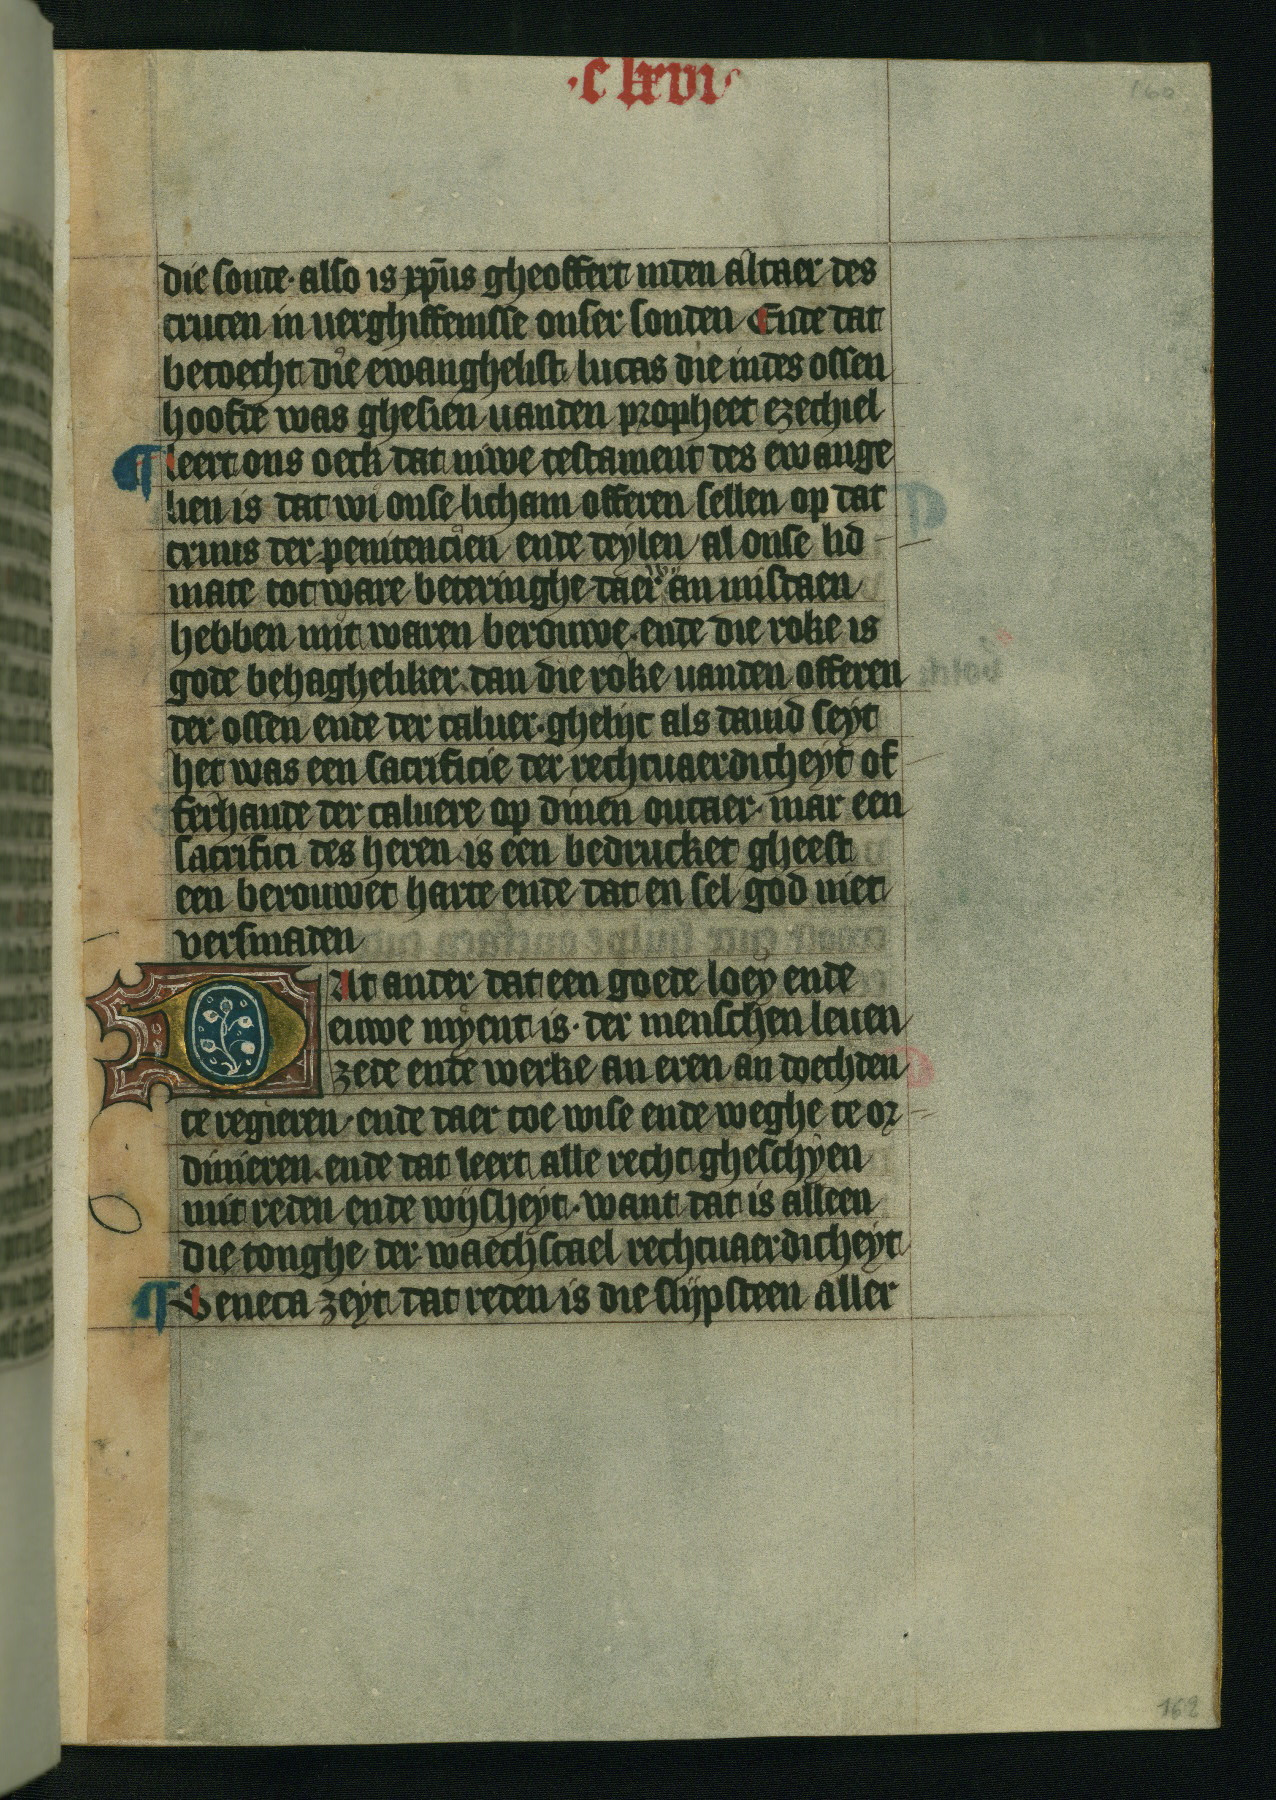 ·C lxvi·
160
die sonde· also is xp̄us gheoffert inden altaer des
crucen in verghiffenisse onser sonden Ende dat
betoecht die ewanghelist lucas die indes ossen
hoofde was ghesien vanden propheet ezechiel
¶ leert ons oeck dat niwe testament des ewange
lien is dat wi onse licham offeren sellen op dat
crius der penitencien ende deylen al onse lid
mate tot ware beteringhe daer an mistaen
hebben mit waren berouwe· ende die roke is
gode behagheliker dan die roke vanden offeren
der ossen ende der caluer· ghelijc als dauid seyt
het was een sacrificie der rechtuaerdicheyt of
ferhande der caluere op dinen outaer· mar een
sacrifici des heren is een bedrucket gheest
een berouwet harte ende dat en sel god niet
versmaden
DAt ander dat een goede loey ende
euwe myent is· der menschen leuen
zede ende werke an eren an doechden
te regieren· ende daer toe wise ende weghe te or
dinieren· ende dat leert alle recht gheschyen
mit reden ende wijsheyt· want dat is alleen
die tonghe der waechscael rechtuaerdicheyt
¶ Seneca zeyt dat reden is die slijpsteen aller
162